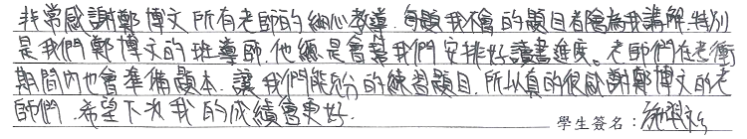 非常感謝鄭博文所有老師的細心教導.每題我不會的題目者會為我講解.特別
是我們鄭博文的班導師.他總是會幫我們安排好讀書進度。老師們在考衝
期間內也會準備題本.讓我們能充分的練習題目.所以真的很感謝鄭博文的老
師們.希望下次我的成績會更好.
學生簽名：